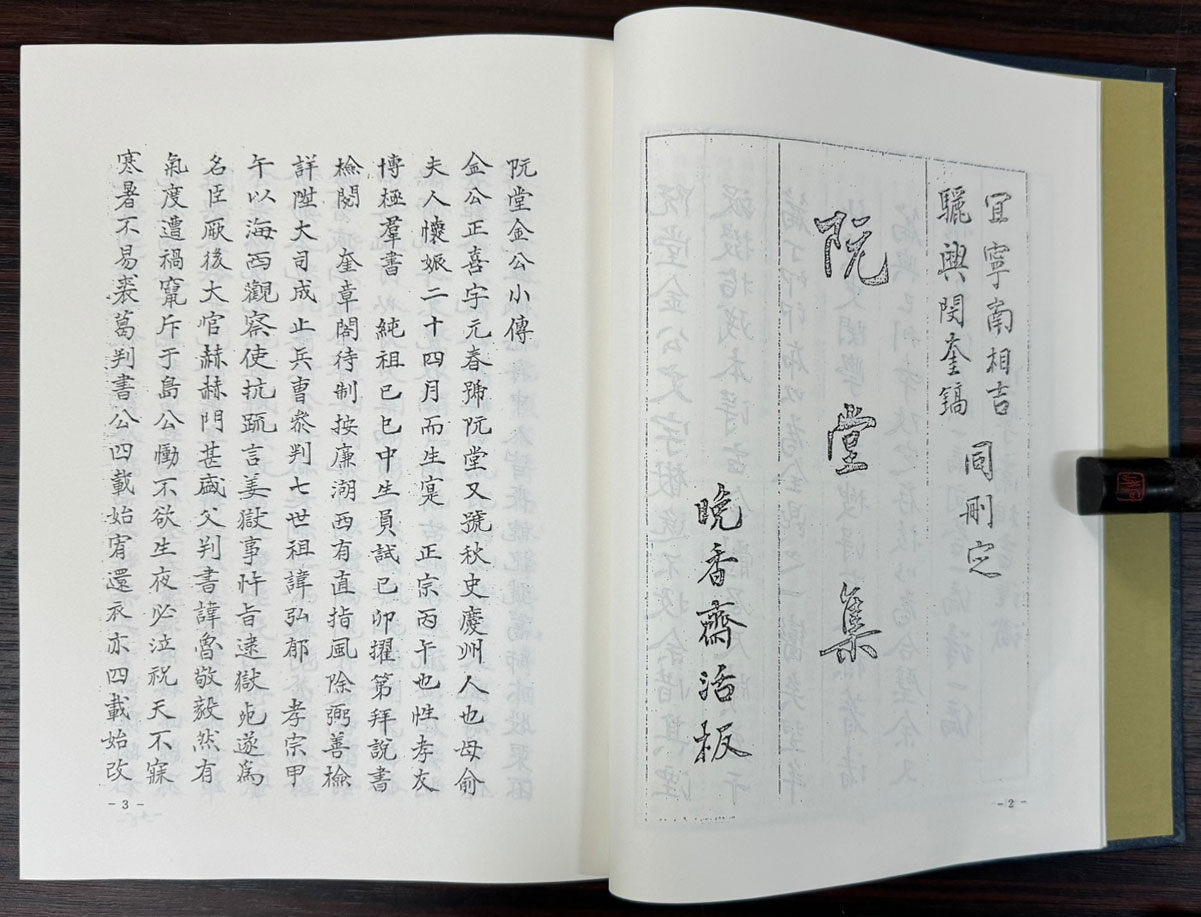 宜寧南相吉
驪興閔奎鎬
同刪定
阮堂集
晩香齋活板
- 2 -
阮堂金公小傳
金公正喜字元春號阮堂又號秋史慶州人也母俞
夫人懷娠二十四月而生寔 正宗丙午也性孝友
博極羣書 純祖己巳中生員試己卯擢第拜說書
檢閱 奎章閣待制按廉湖西有直指風除弼善檢
詳陞大司成止兵曹叅判七世祖諱弘郁 孝宗甲
午以海西觀察使抗疏言姜獄事忤旨逮獄死遂爲
名臣厥後大官赫赫門甚盛父判書諱魯敬毅然有
氣度遭禍竄斥于島公慟不欲生夜必泣祝天不寐
寒暑不易裘葛判書公四載始宥還衣亦四載始改
- 3 -